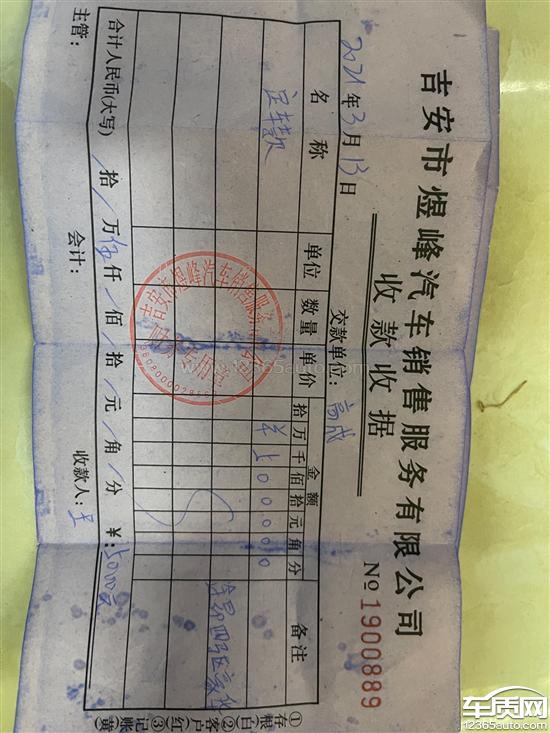 吉安市煜峰汽车销售服务有限公司
收款收据
№1900889
2021年3月13日
交款单位：高成
名称 单位 数量 单价 金额 备注
拾万千佰拾元角分
定车款 ¥500000
合计人民币(大写) 拾 万 伍仟 佰 拾 元 角 分 ¥：5000元
主管： 会计： 收款人：
①存根(白) ②客户(红) ③记账(黄)
吉安市煜峰汽车销售服务有限公司
www.12365auto.com
车质网
12365auto.com